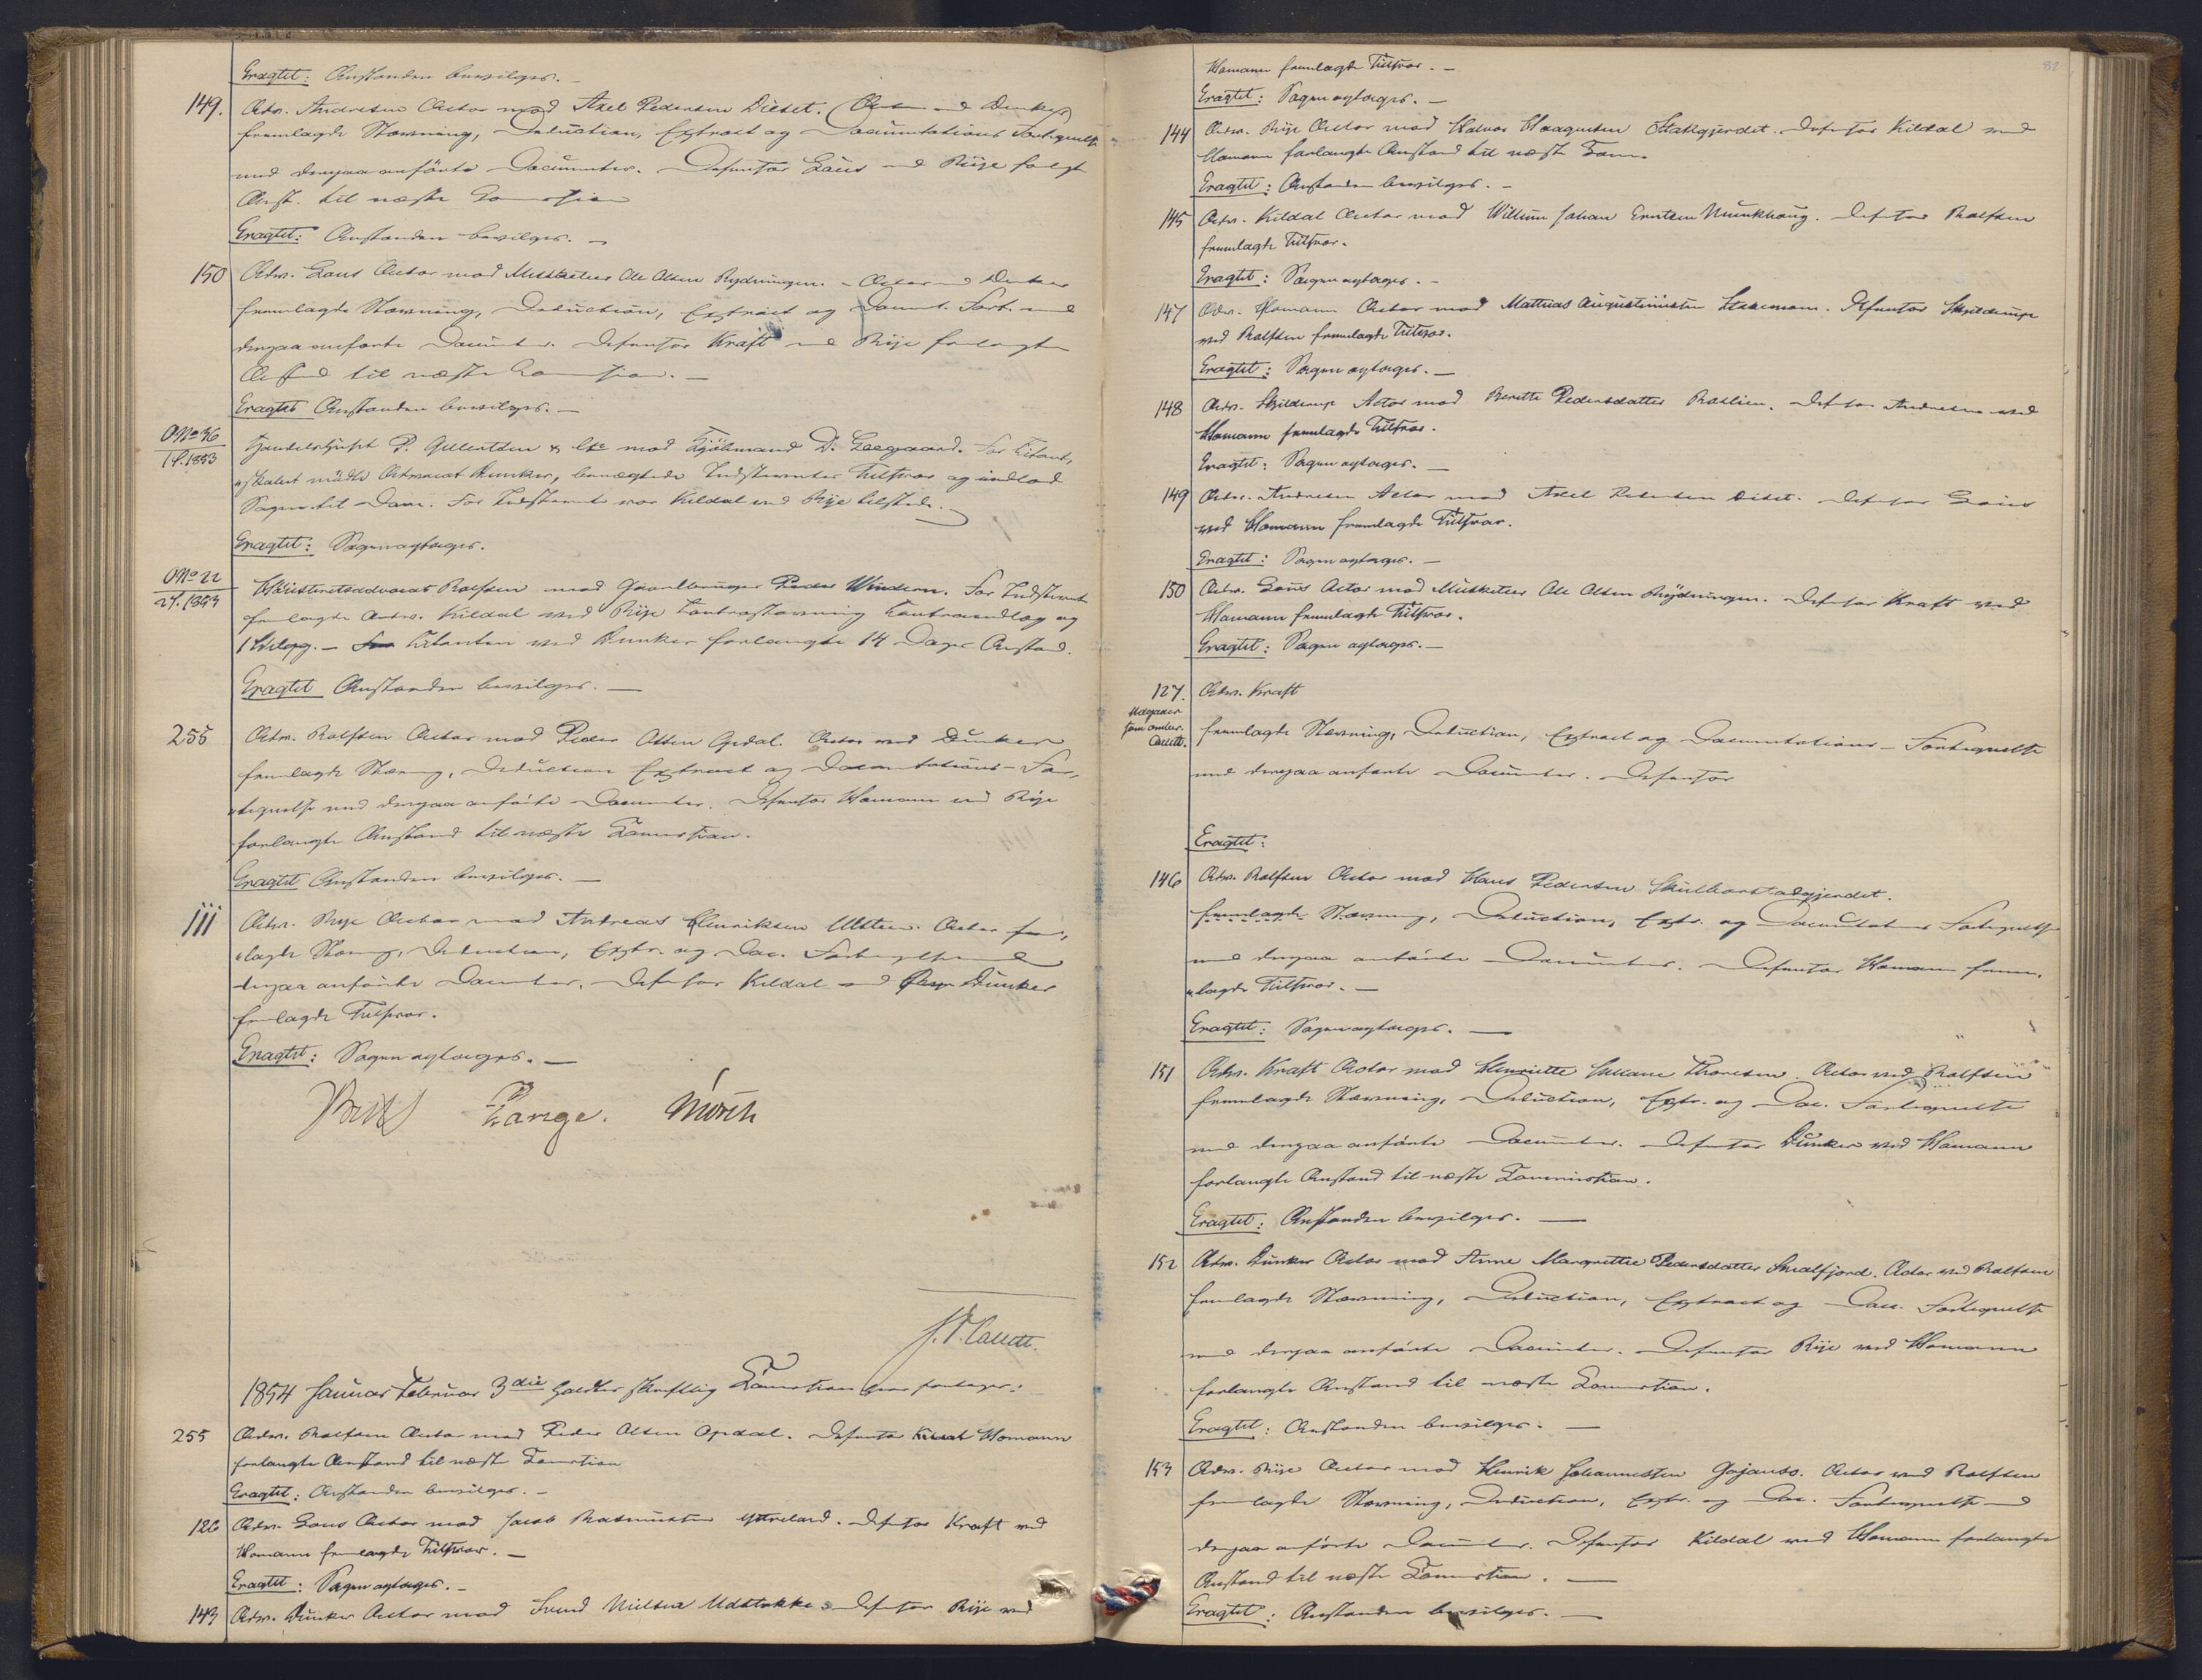 Eragtet: Anstanden bevilges. —
149. Adv. Andresen Actor mod Axel Pedersen Dieset. Actor ved Dunker
fremlagde Stævning, Deduction, Extract og Documentations Fortegnelse
med derpaa anførte Documenter. Defensor Lous ved Rije forlgt
Anst. til næste Session
Eragtet: Anstanden bevilges. —
150 Adv. Lous Actor mod Musketeer Ole Olsen Rydningen. — Actor ved Dunker
fremlagde Stævning, Deduction, Extract og Docmt. Fort. med
derpaa anførte Documenter. Defensor Kraft ved Rije forlangte
Anstand til næste Session. —
Eragtet Anstanden bevilges. —
O No 36
1 S. 1853
Handelshuset P. Gullentsen & Cie mod Kjøbmand D. Leegaard. For Citant,
"skabet mødte Advocat Dunker, benægtede Indstevntes Tilsvar og indlod
Sagen til Dom. For Indstevnte var Kildal ved Rije tilstede.
Eragtet: Sagen optages.
O No 22
2 S. 1853
Høiesteretsadvocat Rolfsen mod Gaardbruger Peder Windern. For Indstevnte
fremlagde Advo. Kildal ved Rije Contrastævning Contraindlæg og
1 Bilag. — Citanten ved Dunker forlangte 14 Dages Anstand.
Eragtet Anstanden bevilges. —
255 Adv. Rolfsen Actor mod Peder Olsen Opdal. Actor ved Dunker
fremlagde Stævning, Deduction Extract og Documentations-For,
"tegnelse med derpaa anførte Documenter. Defensor Homann ved Rije
forlangte Anstand til næste Session.
Eragtet Anstanden bevilges. —
111 Adv. Rije Actor mod Andreas Henriksen Ulsteen. Actor frem,
"lagde Stævning, Deduction, Extr. og Doc. Fortegnelse med
derpaa anførte Documenter. Defensor Kildal ved Dunker
fremlagde Tilsvar.
Eragtet: Sagen optages. —
Lange. Mörch
1854 Januar Februar 3die holdtes skriftlig Session hvor foretages:
255 Adv. Rolfsen Actor mod Peder Olsen Opdal. Defensor Homann
forlangte Anstand til næste Session
Eragtet: Anstanden bevilges. —
126 Adv. Lous Actor mod Jacob Rasmussen Ytreland. Defensor Kraft ved
Homann fremlagde Tilsvar. —
Eragtet: Sagen optages. —
143 Adv. Dunker Actor mod Svend Nielsen Udstokke. Defensor Rije ved
82
Homann fremlagde Tilsvar. —
Eragtet: Sagen optages. —
144 Adv. Rije Actor mod Halvor Haagensen Stakgjerdet. Defensor Kildal ved
Homann forlangte Anstand til næste Session
Eragtet: Anstanden bevilges. —
145 Adv. Kildal Actor mod Willum Johan Erntsen Munkhaug. Defensor Rolfsen
fremlagde Tilsvar.
Eragtet: Sagen optages. —
147 Adv. Homann Actor mod Mathias Augustinusen Stakemoen. Defensor Skjelderup
ved Rolfsen fremlagde Tilsvar.
Eragtet: Sagen optages. —
148 Adv. Skjelderup Actor mod Berette Pedersdatter Raslien. Defensor Andresen ved
Homann fremlagde Tilsvar.
Eragtet: Sagen optages. —
149 Adv. Andresen Actor mod Axel Pedersen Dieset. Defensor Lous
ved Homann fremlagde Tilsvar.
Eragtet: Sagen optages. —
150 Adv. Lous Actor mod Musketeer Ole Olsen Røydningen. Defensor Kraft ved
Homann fremlagde Tilsvar.
Eragtet: Sagen optages. —
127. Adv. Kraft
Udgaaer
som
fremlagde Stævning, Deduction, Extract og Documentations-Fortegnelse
med derpaa anførte Documenter. Defensor
Eragtet:
146 Adv. Rolfsen Actor mod Hans Pedersen Skulborstadgjerdet.
fremlagde Stævning, Deduction, Extr. og Documentations Fortegnelse
med derpaa anførte Documenter. Defensor Homann frem,
"lagde Tilsvar. —
Eragtet: Sagen optages. —
151 Adv. Kraft Actor mod Henriette Susane Thoresen. Actor ved Rolfsen
fremlagde Stævning, Deduction, Extr. og Doc. Fortegnelse
med derpaa anførte Documenter. Defensor Dunker ved Homann
forlangte Anstand til næste Session.
Eragtet: Anstanden bevilges. —
152 Adv. Dunker Actor mod Anne Margrethe Pedersdatter Smalfjord. Actor ved Rolfsen
fremlagde Stævning, Deduction, Extract og Doc. Fortegnelse
med derpaa anførte Documenter. Defensor Rije ved Homann
forlangte Anstand til næste Session.
Eragtet: Anstanden bevilges. —
153 Adv. Rije Actor mod Henrik Johannessen Gojanso. Actor ved Rolfsen
fremlagde Stævning, Deduction, Extr. og Doc. Fortegnelse med
derpaa anførte Documenter. Defensor Kildal ved Homann forlangte
Anstand til næste Session. —
Eragtet: Anstanden bevilges. —